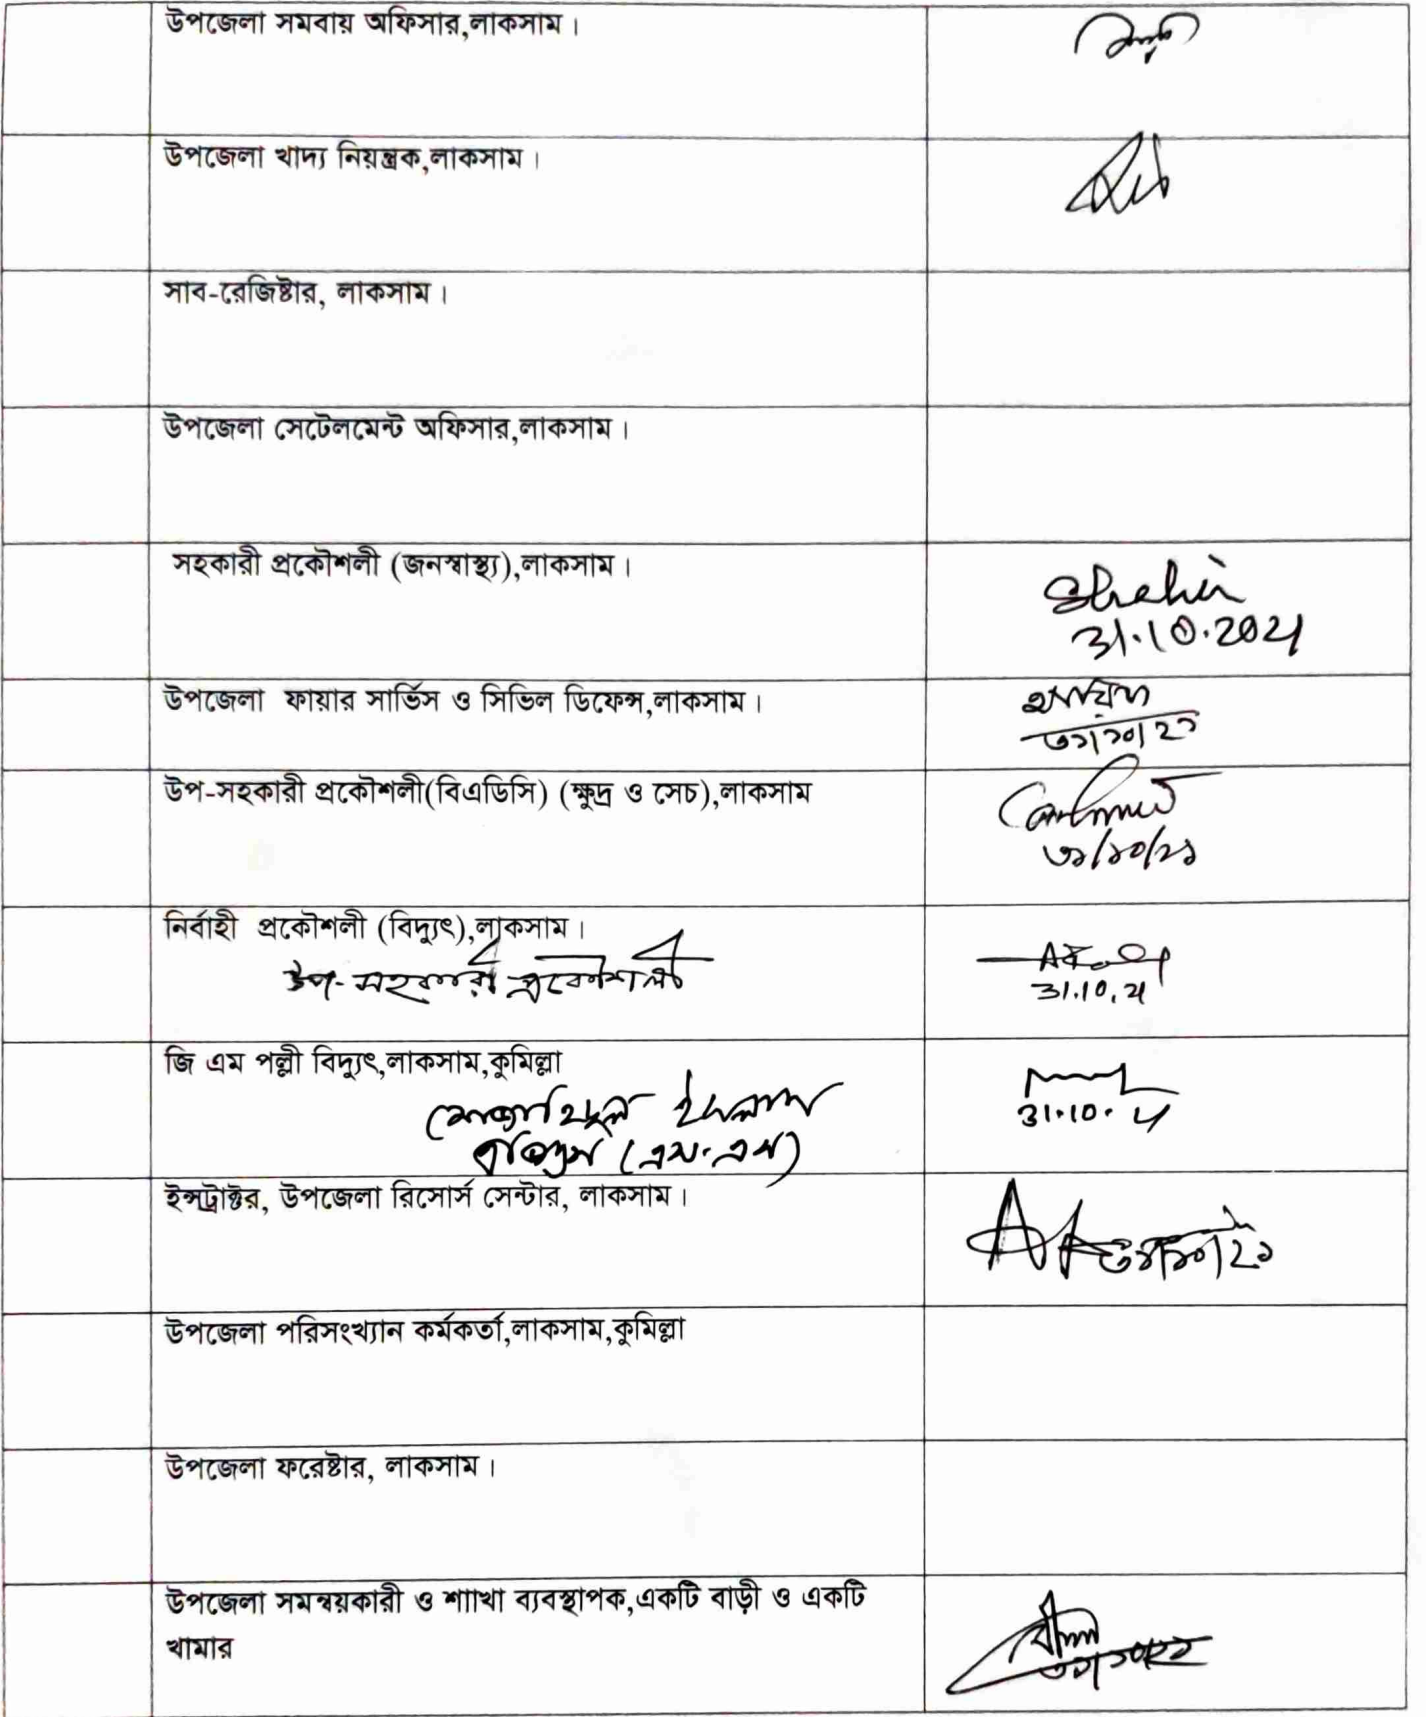 উপজেলা সমবায় অফিসার,লাকসাম।
উপজেলা খাদ্য নিয়ন্ত্রক,লাকসাম।
সাব-রেজিষ্টার, লাকসাম।
উপজেলা সেটেলমেন্ট অফিসার,লাকসাম।
সহকারী প্রকৌশলী (জনস্বাস্থ্য),লাকসাম।
Shahin
31.10.2021
উপজেলা ফায়ার সার্ভিস ও সিভিল ডিফেন্স,লাকসাম।
৩১/১০/২১
উপ-সহকারী প্রকৌশলী(বিএডিসি) (ক্ষুদ্র ও সেচ),লাকসাম
৩১/১০/২১
নির্বাহী প্রকৌশলী (বিদ্যুৎ),লাকসাম।
উপ-সহকারী প্রকৌশলী
31.10.21
জি এম পল্লী বিদ্যুৎ,লাকসাম,কুমিল্লা
ইসলাম
31.10.21
(এম.এস)
ইন্সট্রাক্টর, উপজেলা রিসোর্স সেন্টার, লাকসাম।
৩১/১০/২১
উপজেলা পরিসংখ্যান কর্মকর্তা,লাকসাম,কুমিল্লা
উপজেলা ফরেষ্টার, লাকসাম।
উপজেলা সমন্বয়কারী ও শাাখা ব্যবস্থাপক,একটি বাড়ী ও একটি
খামার